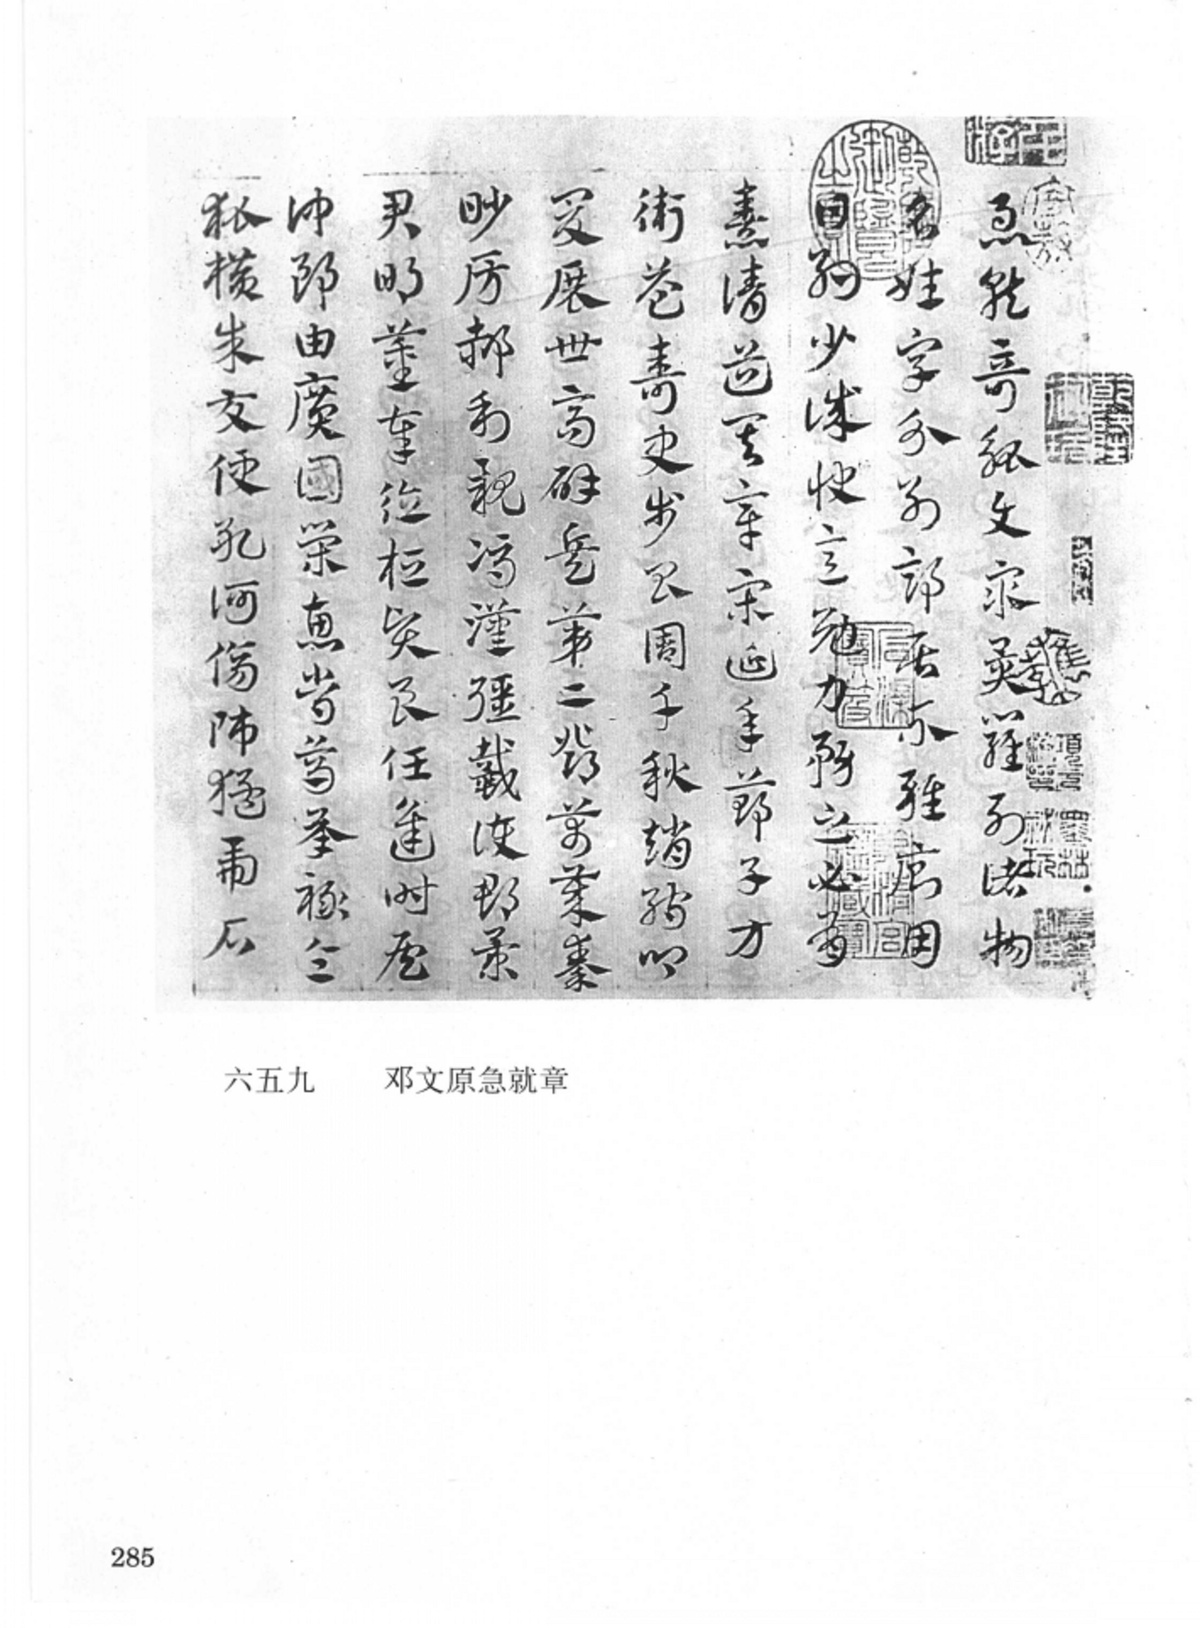 急就奇觚與衆異羅列諸物
名姓字分別部居不雜廁用
日約少誠快意勉力務之必有
憙請道其章宋延年鄭子方
衛益壽史步昌周千秋趙孺卿
爰展世高辟兵第二鄧萬歲秦
眇房郝利親馮漢彊戴護郡景
君明董奉德桓賢良任逢時侯
仲郎由廣國榮惠常烏承祿令
狐橫朱交便孔何傷師猛虎石
六五九 邓文原急就章
285